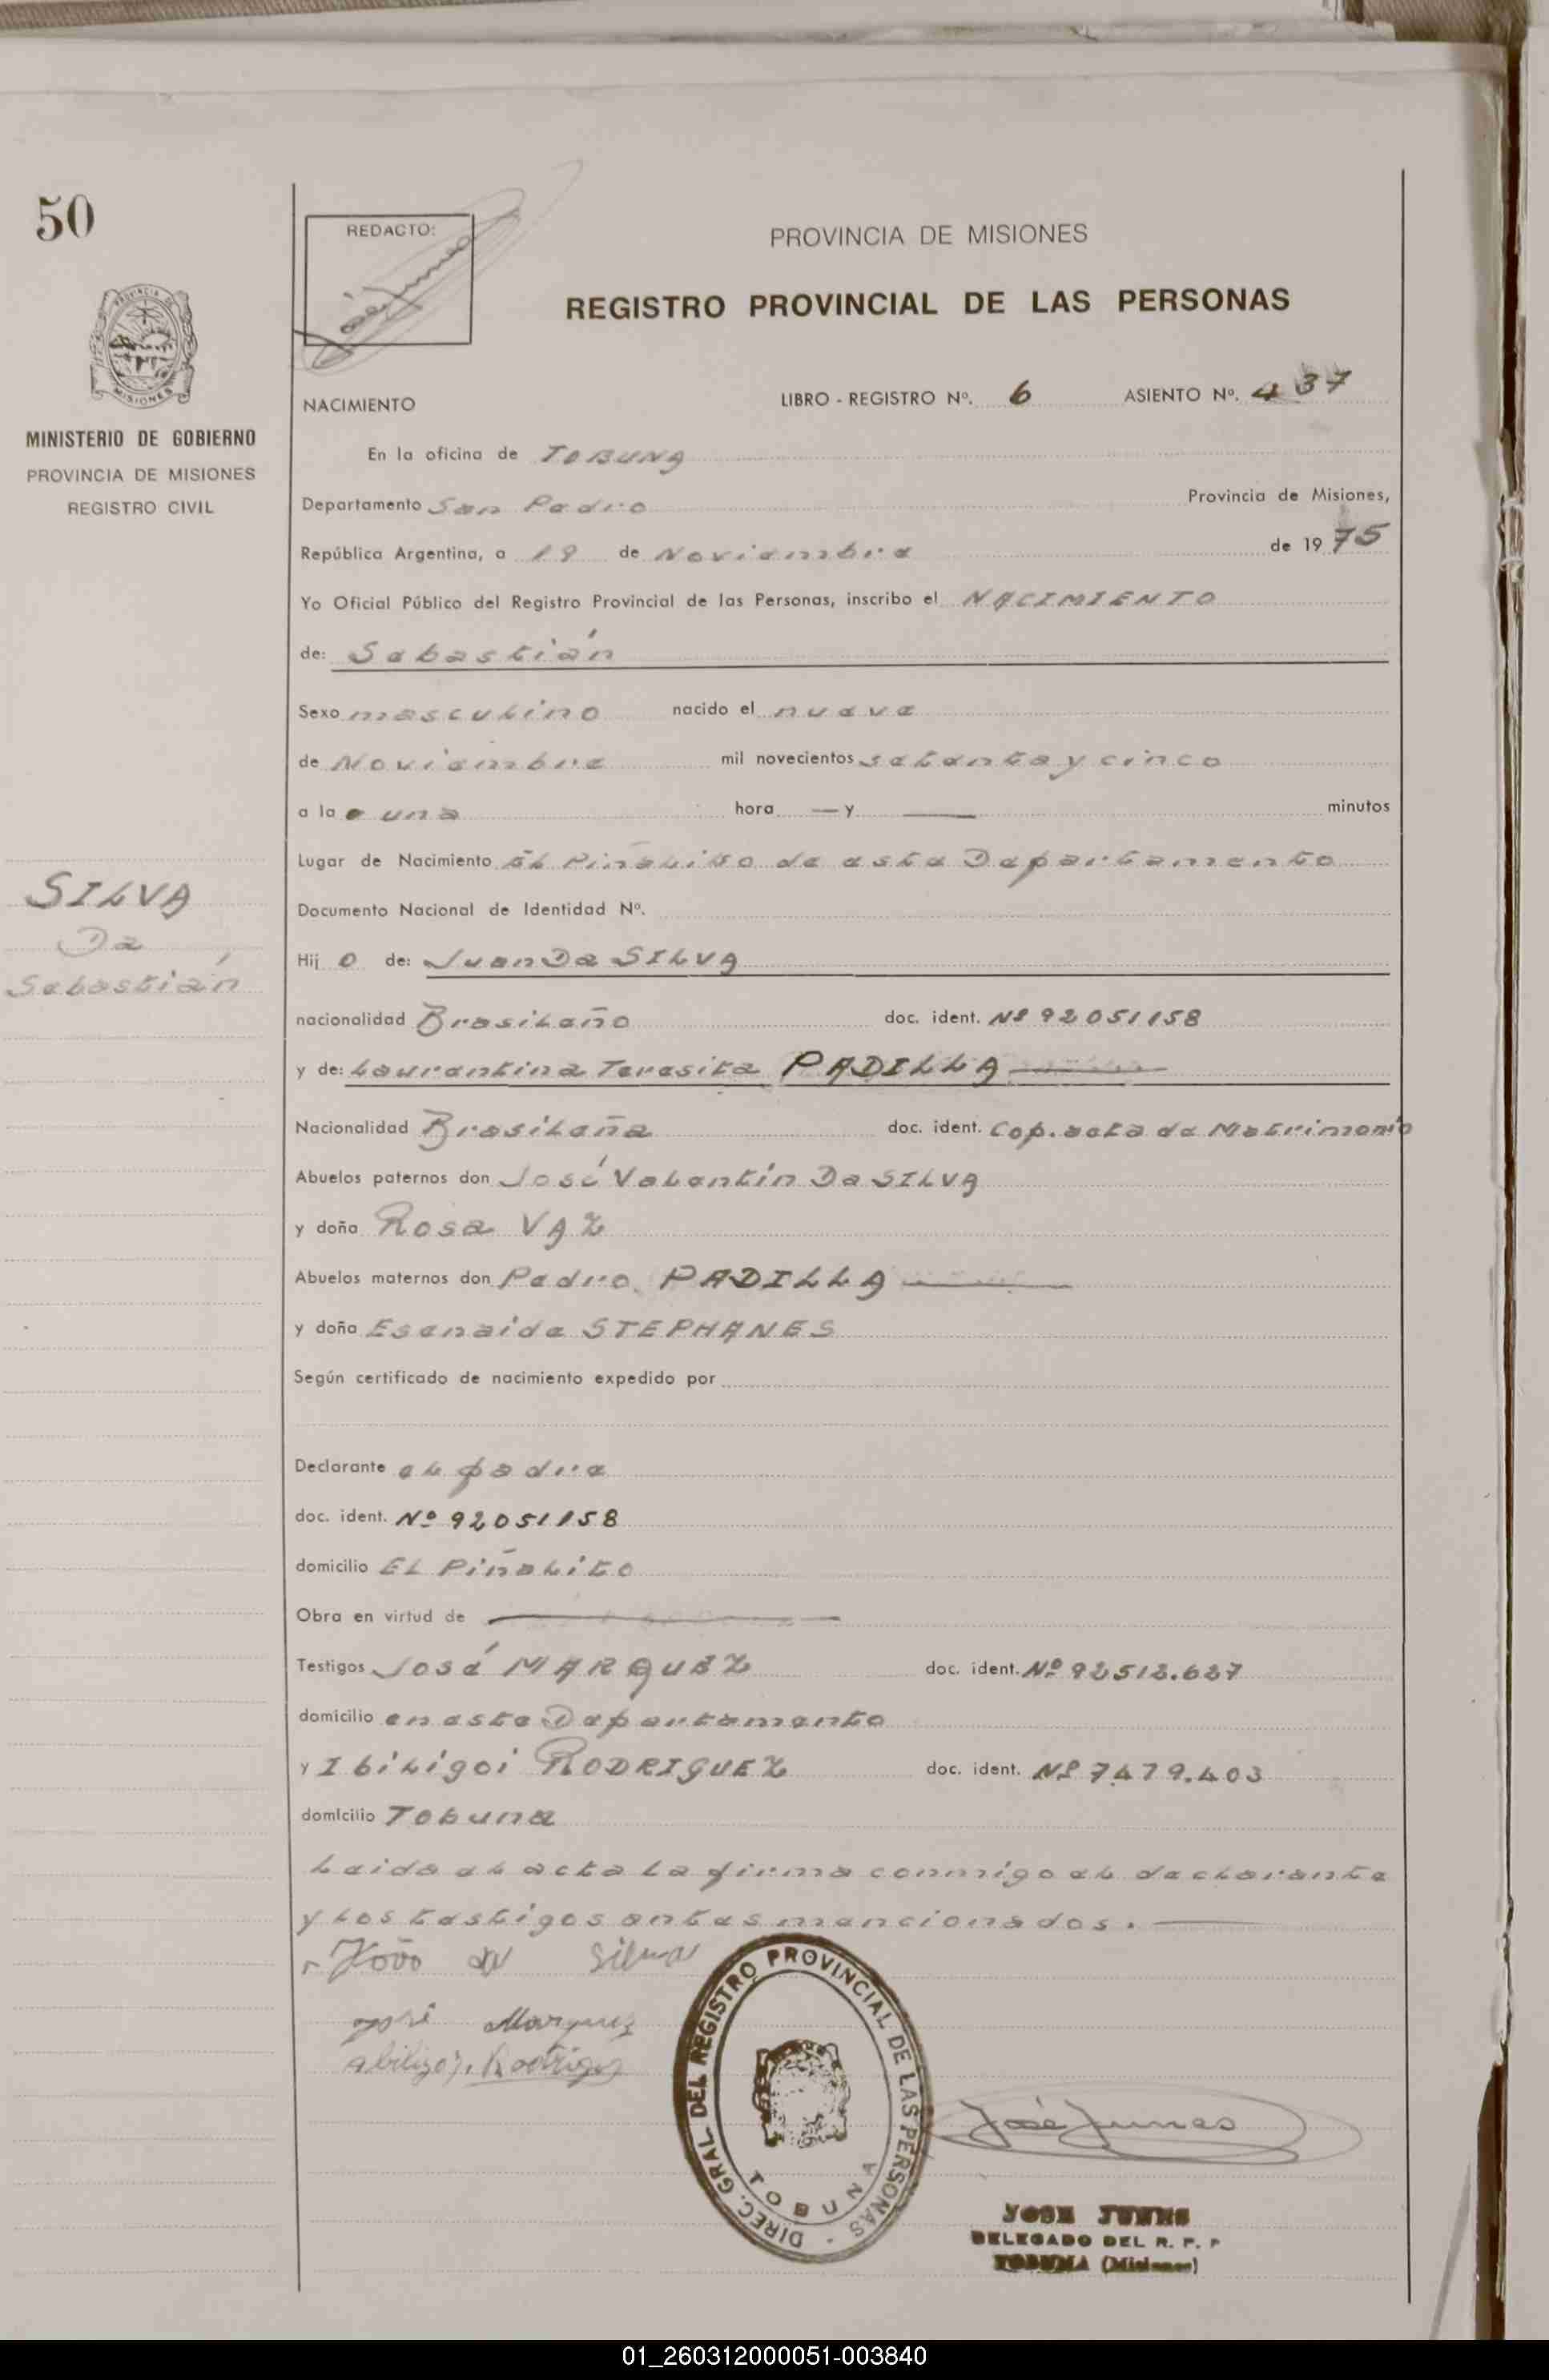 50
REDACTO:
PROVINCIA DE MISIONES
REGISTRO PROVINCIAL DE LAS PERSONAS
MINISTERIO DE GOBIERNO
PROVINCIA DE MISIONES
REGISTRO CIVIL
NACIMIENTO LIBRO - REGISTRO Nº. 6 ASIENTO Nº. 437
En la oficina de TOBUNA
Departamento San Pedro Provincia de Misiones,
República Argentina, a 19 de Noviembre de 1975
Yo Oficial Público del Registro Provincial de las Personas, inscribo el NACIMIENTO
de: Sebastián
Sexo masculino nacido el nueve
de Noviembre mil novecientos setenta y cinco
a la una hora — y — minutos
Lugar de Nacimiento El Piñalito de este Departamento
SILVA
Da
Sebastián
Documento Nacional de Identidad Nº.
Hij o de: Juan Da SILVA
nacionalidad Brasileño doc. ident. Nº 92051158
y de: Laurentina Teresita PADILLA
Nacionalidad Brasileña doc. ident. Cop. acta de Matrimonio
Abuelos paternos don José Valentín Da SILVA
y doña Rosa VAZ
Abuelos maternos don Pedro PADILLA
y doña Esenaide STEPHANES
Según certificado de nacimiento expedido por
Declarante el padre
doc. ident. Nº 92051158
domicilio EL Piñalito
Obra en virtud de
Testigos José MARQUEZ doc. ident. Nº 92512.627
domicilio en este Departamento
y Ibiligoi RODRIGUEZ doc. ident. Nº 7479.403
domicilio Tobuna
Leida el acta la firma conmigo el declarante
y los testigos antes mencionados.
João da Silva
José Marquez
Abiligoi. Rodriguez
DIREC. GRAL. DEL REGISTRO PROVINCIAL DE LAS PERSONAS -
TOBUNA
José Junes
JOSE JUNES
DELEGADO DEL R. P. P
TOBUNA (Misiones)
01_260312000051-003840